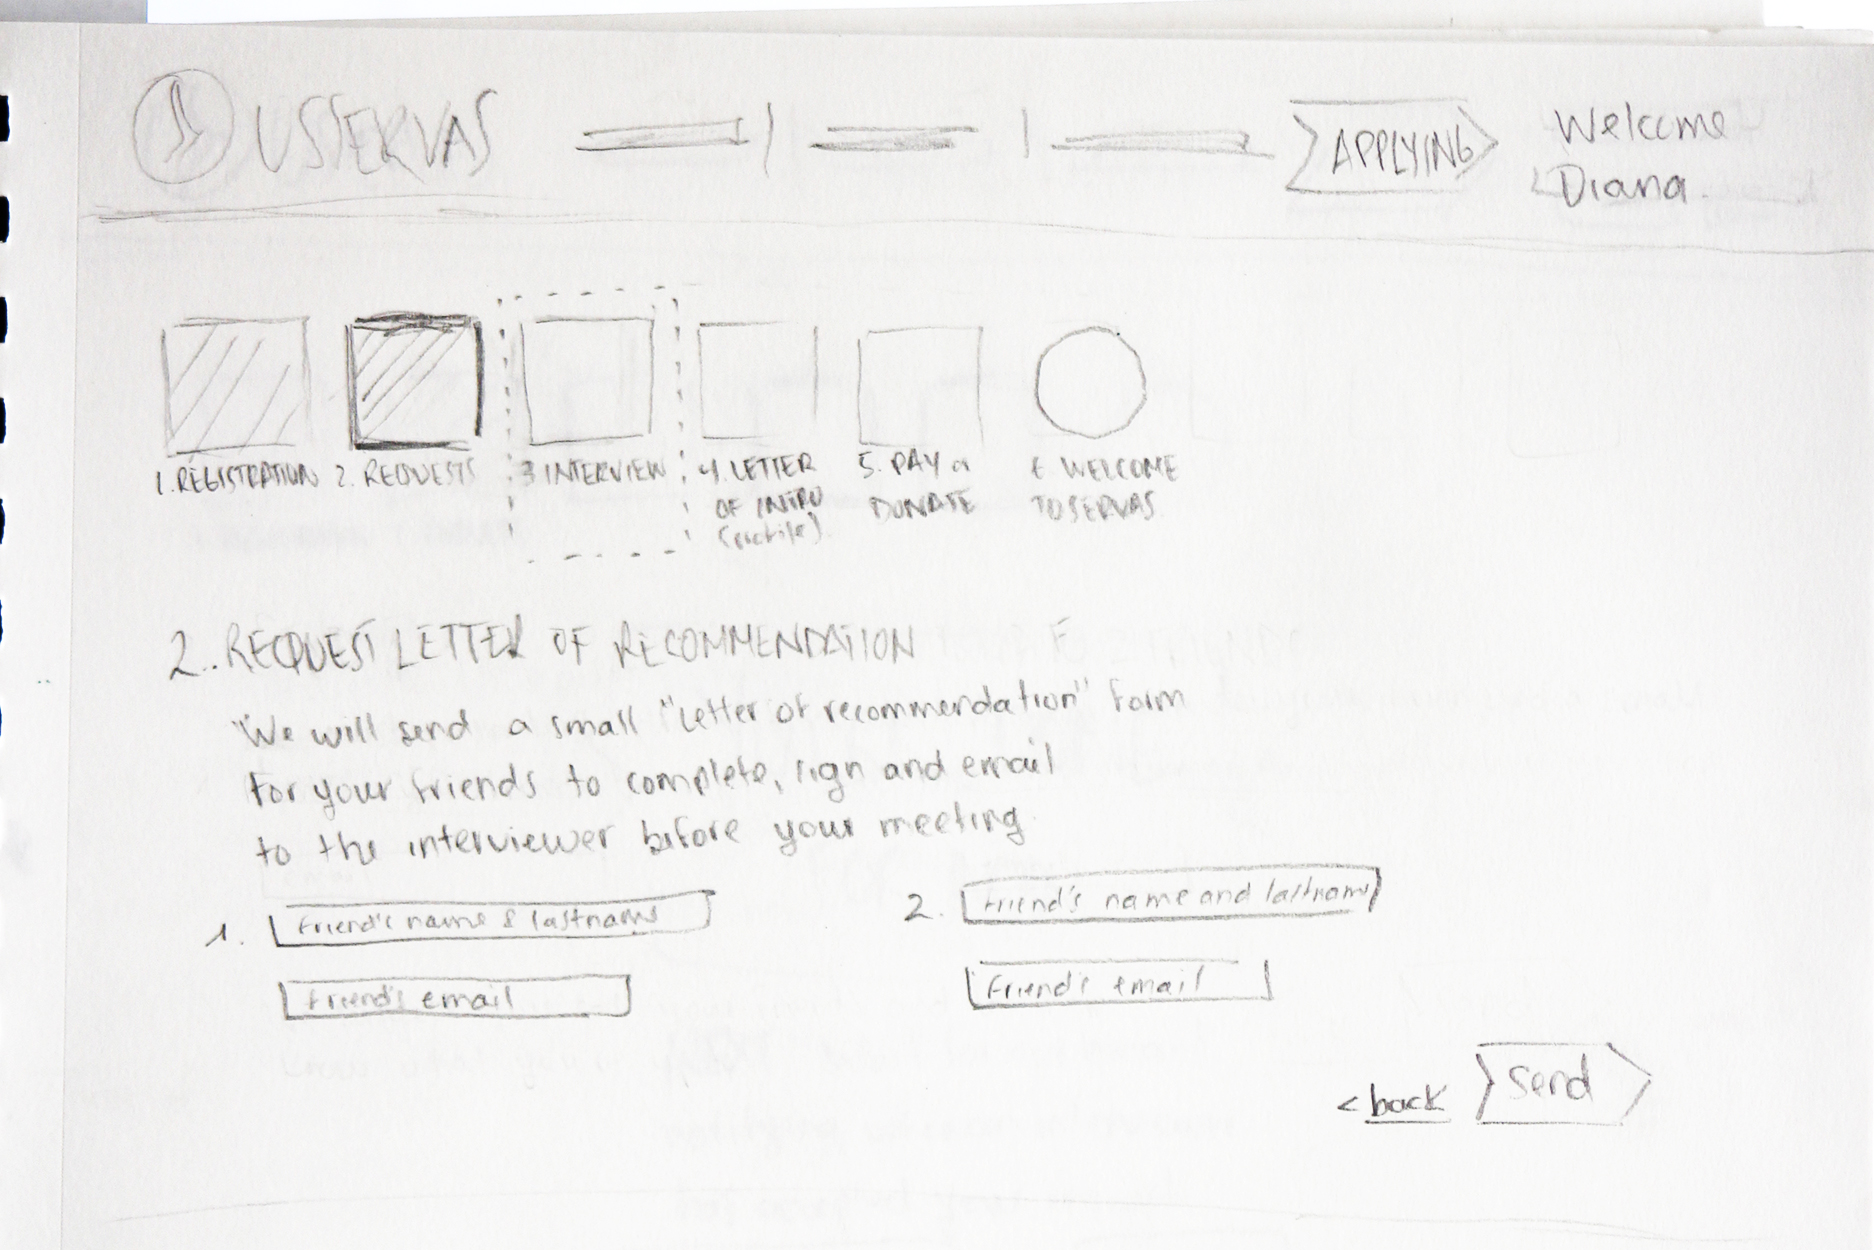 USSERVAS
APPLYING
Welcome
Diana.
1. REGISTRATION
2. REQUESTS
3 INTERVIEW
4. LETTER
OF INTRO
(profile).
5. PAY a
DONATE
6. WELCOME
TO SERVAS
2.. REQUEST LETTER OF RECOMMENDATION
"We will send a small "Letter of recommendation" form
for your friends to complete, sign and email
to the interviewer before your meeting
1. Friend's name & lastname
Friend's email
2. Friend's name and lastname
Friend's email
< back
Send